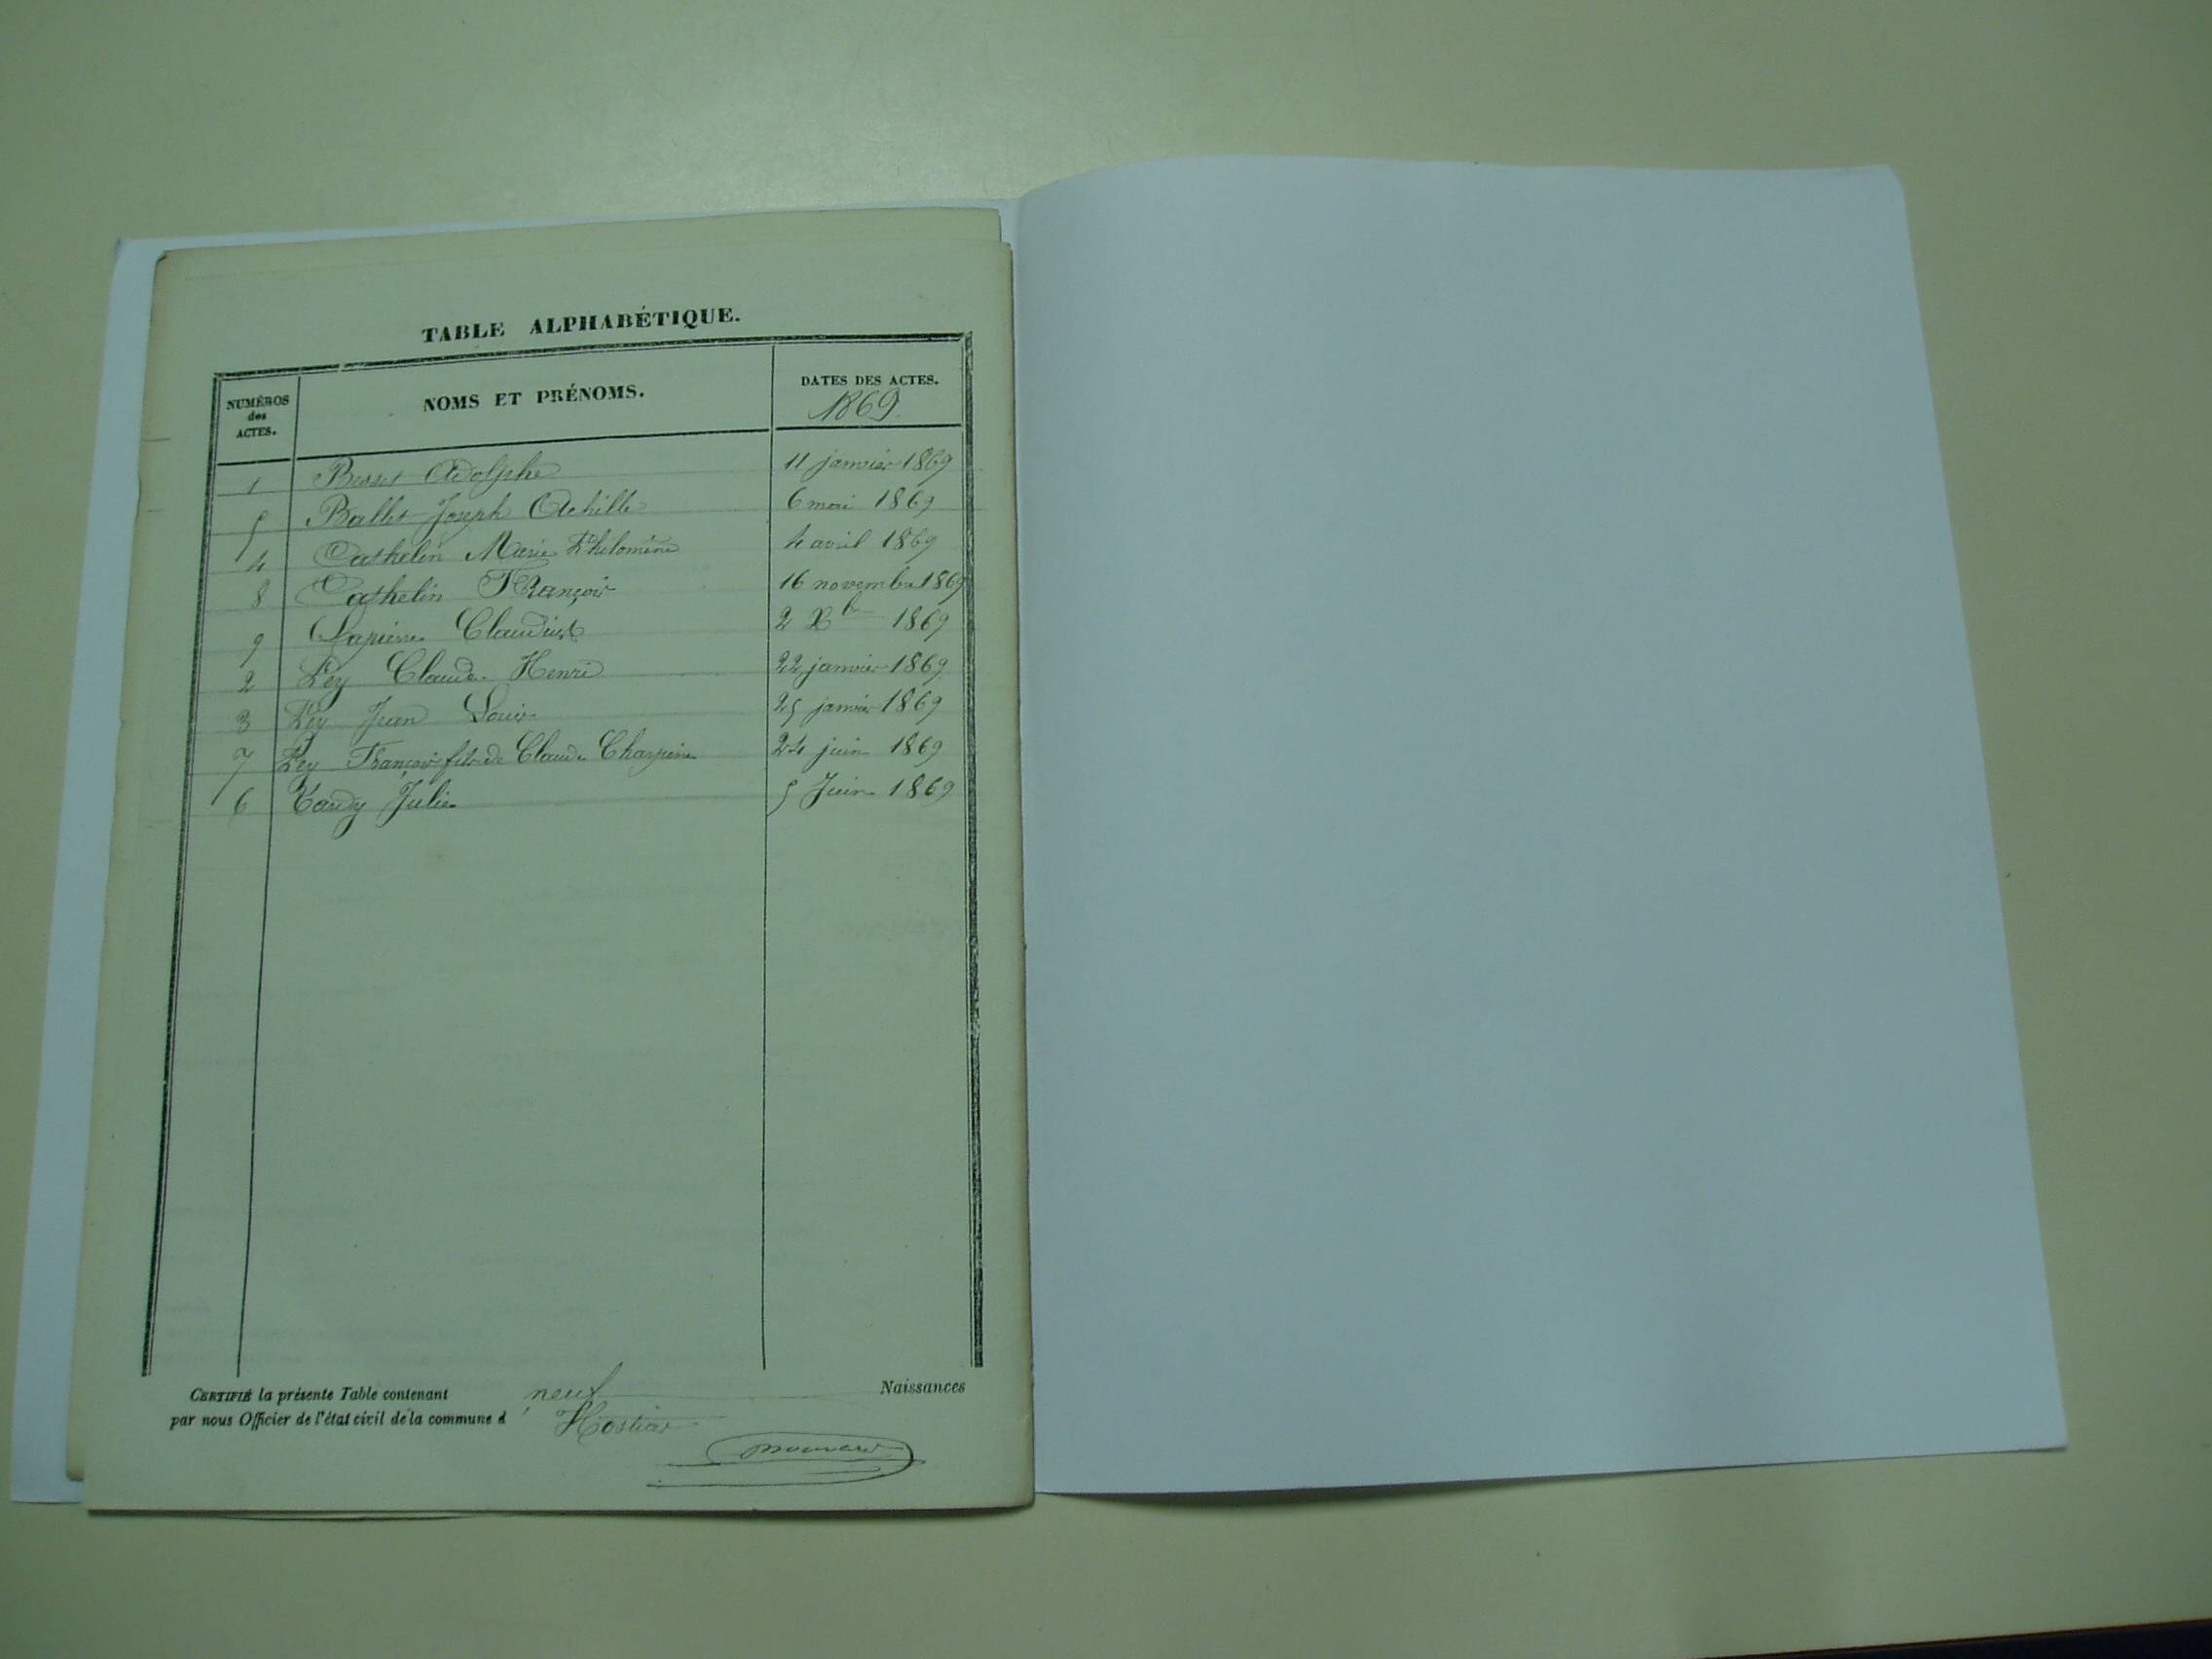 TABLE ALPHABÉTIQUE.
NUMÉROS des ACTES. NOMS ET PRÉNOMS. DATES DES ACTES.
1869
1 Adolphe 11 janvier 1869
5 Ballet Joseph Achille 6 mai 1869
4 Cathelin Marie Philomène 4 avril 1869
8 Cathelin François 16 novembre 1869
9 Lapierre 2 Xbre 1869
2 Pey Claude Henri 22 janvier 1869
3 Pey Jean Louis 25 janvier 1869
7 Pey François fils de Claude 24 juin 1869
6 Tardy Julie 5 Juin 1869
CERTIFIÉ la présente Table contenant neuf Naissances
par nous Officier de l'état civil de la commune d' Hostias